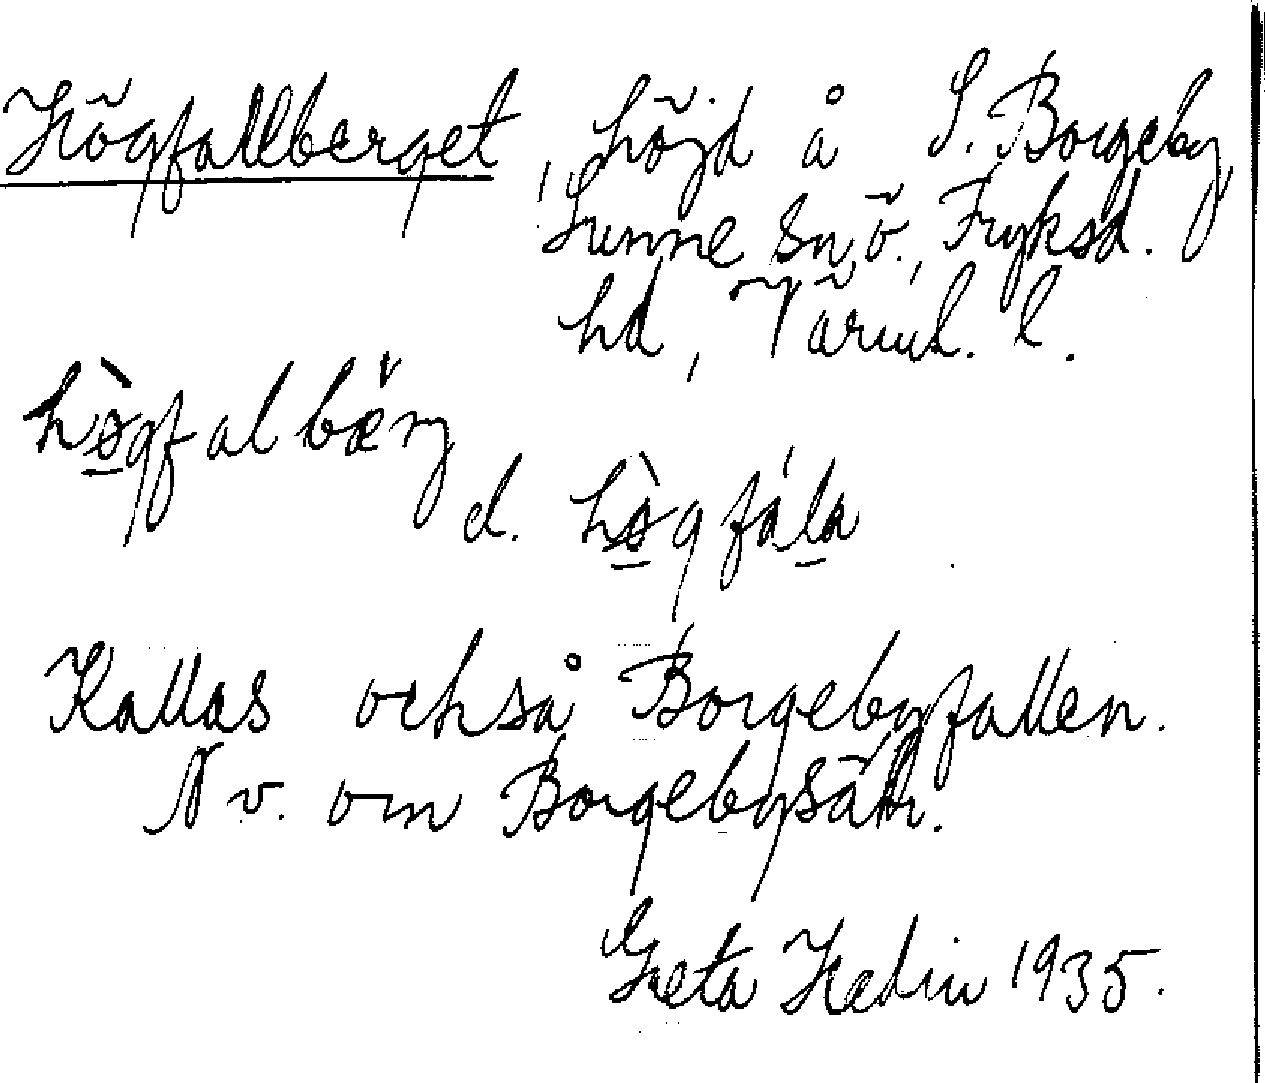 Högfallberget, höjd å S. Borgeby,
Sunne sn, ö. Fryksd.
hd, Värml. l.
hø̀gfalbærg
d. hø̀gfála
Kallas också Borgebyfallen.
N v. om Borgebysätr.
Greta Hedin 1935.